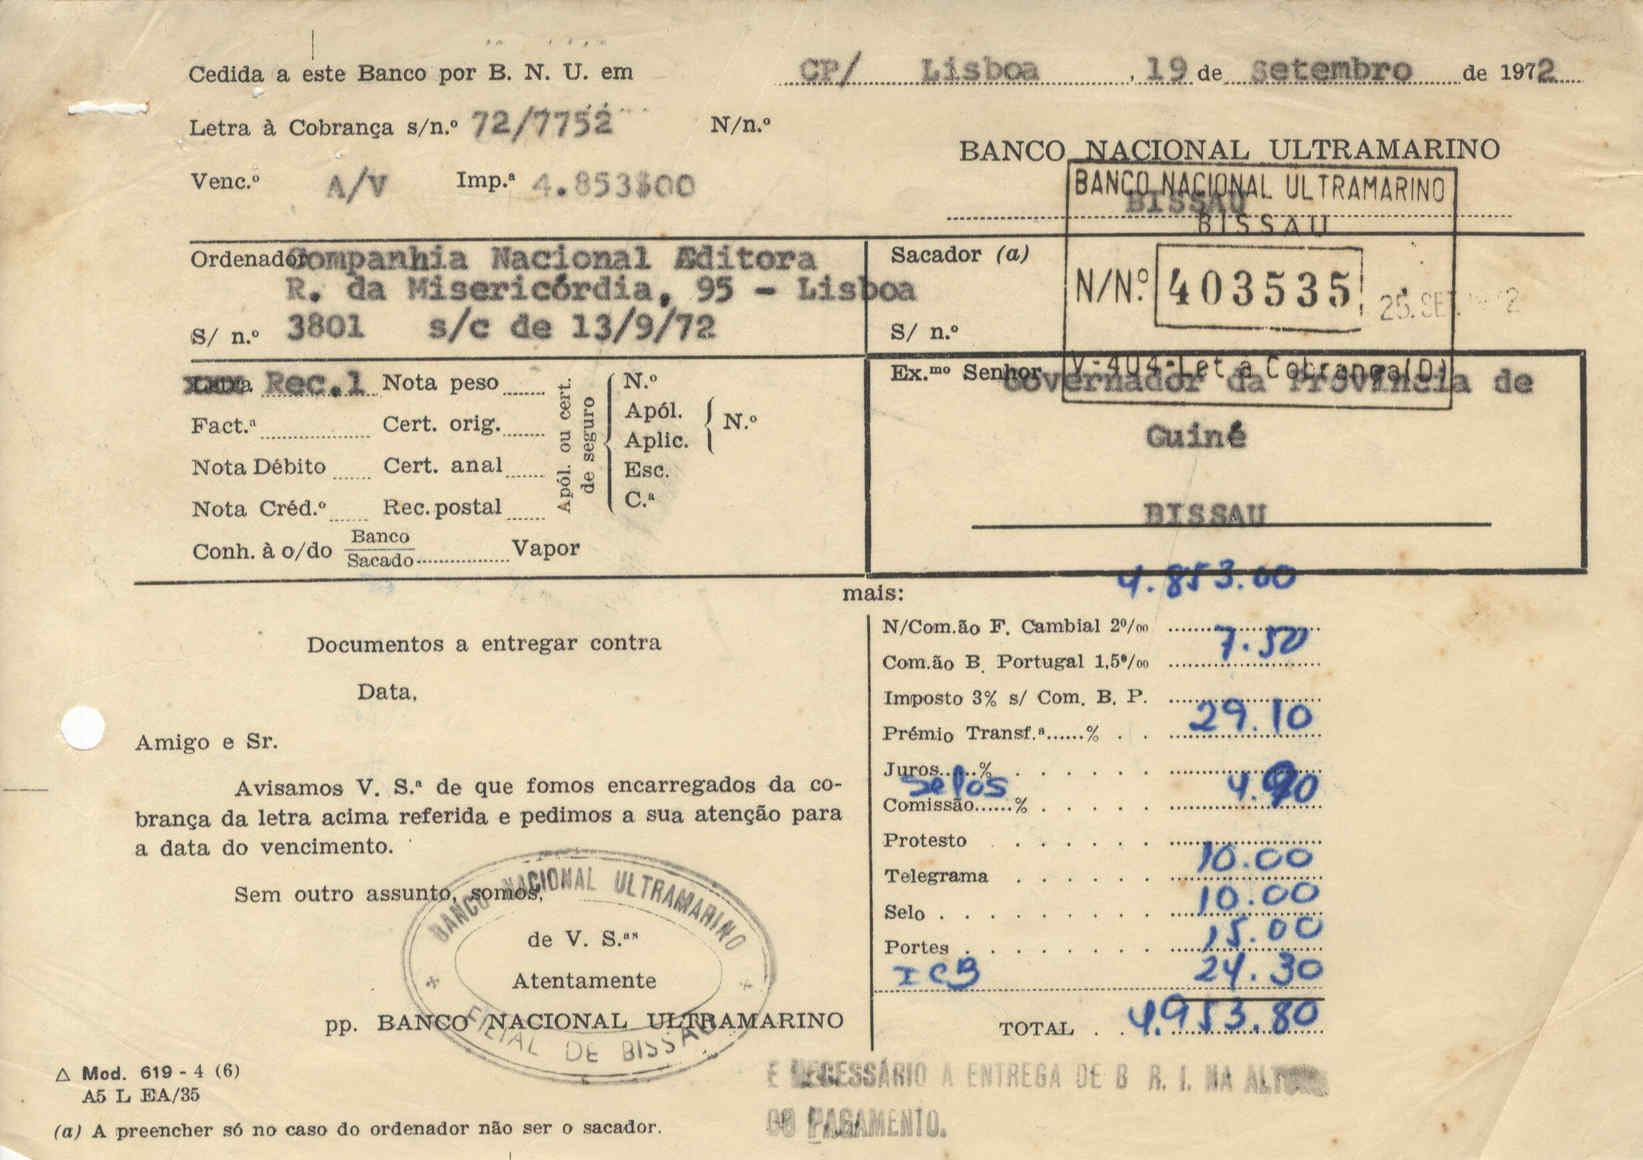 Cedida a este Banco por B. N. U. em
CP/ Lisboa, 19 de Setembro de 1972
Letra à Cobrança s/n.º 72/7752 N/n.º
BANCO NACIONAL ULTRAMARINO
Venc.º A/V Imp.ª 4.853$00
BISSAU
BANCO NACIONAL ULTRAMARINO
BISSAU
N/Nº 403535
25.SET.
V-404-Let à Cobrança(D)
Ordenador Companhia Nacional Editora
R. da Misericórdia, 95 - Lisboa
S/ n.º 3801 s/c de 13/9/72
Sacador (a)
S/ n.º
Ex.mo Senhor Governador da Província de
Guiné
BISSAU
Rec.1 Nota peso
Fact.ª Cert. orig.
Nota Débito Cert. anal
Nota Créd.º Rec. postal
Conh. à o/do Banco
Sacado Vapor
Apól. ou cert.
de seguro
N.º
Apól.
Aplic.
N.º
Esc.
C.ª
4.853.00
mais:
Documentos a entregar contra
Data,
Amigo e Sr.
Avisamos V. S.ª de que fomos encarregados da co-
brança da letra acima referida e pedimos a sua atenção para
a data do vencimento.
Sem outro assunto, somos,
de V. S.as
Atentamente
pp. BANCO NACIONAL ULTRAMARINO
BANCO NACIONAL ULTRAMARINO
FILIAL DE BISSAU
N/Com.ão F. Cambial 2º/oo 7.50
Com.ão B. Portugal 1,5º/oo
Imposto 3% s/ Com. B. P. 29.10
Prémio Transf.ª......% . .
Juros......% . . . . . .
selos 4.90
Comissão......% . . . . .
Protesto . . . . . . 10.00
Telegrama . . . . . . 10.00
Selo . . . . . . . . . 15.00
Portes . . . . . . . .
ICB 24.30
TOTAL . . 4.953.80
É NECESSÁRIO A ENTREGA DE B R. I. NA
DO PAGAMENTO.
△ Mod. 619 - 4 (6)
A5 L EA/35
(a) A preencher só no caso do ordenador não ser o sacador.